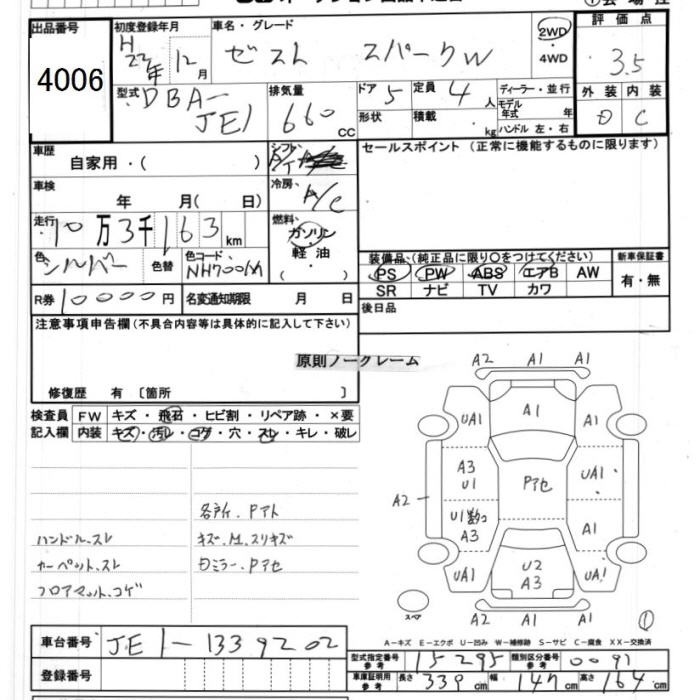 出品番号
4006
初度登録年月
H 22年 12月
車名・グレード
ゼスト スパークW
2WD
・
4WD
評価点
3.5
外装 内装
D C
型式
DBA-
JE1
排気量
660 cc
ドア 5
定員 4 人
形状
積載 kg
ディーラー・並行
モデル年式 年
ハンドル 左・右
車歴
自家用・( )
シフト
車検
年 月( 日)
冷房
A/C
走行
10万3千163km
燃料
ガソリン
軽油
( ・ )
色
シルバー
色替
色コード
NH700M
R券 10000円
名変通知期限 月 日
セールスポイント(正常に機能するものに限ります)
装備品(純正品に限り〇をつけてください)
PS PW ABS エアB AW
SR ナビ TV カワ
新車保証書
有・無
後日品
注意事項申告欄(不具合内容等は具体的に記入して下さい)
修復歴 有 〔箇所 〕
原則ノークレーム
検査員記入欄
FW キズ・飛石・ヒビ割・リペア跡・×要
内装 キズ・汚レ・コゲ・穴・スレ・キレ・破レ
各所、Pアト
ハンドル、スレ
キズ、M、スリキズ
カーペット、スレ
Dミラー、Pアセ
フロアマット、コゲ
A2 A1 A1
UA1 A1 A1
A3
U1
Pアセ
UA1
A2
U1数コ
A3
A1
UA1
U2
A3
UA1
スペア
A2 A1 A1
A-キズ E-エクボ U-凹み W-補修跡 S-サビ C-腐食 XX-交換済
車台番号 JE1-1339202
登録番号
型式指定番号 参考 15295
類別区分番号 参考 0091
車庫証明用 参考 長さ 339 cm 幅 147 cm 高さ 164 cm